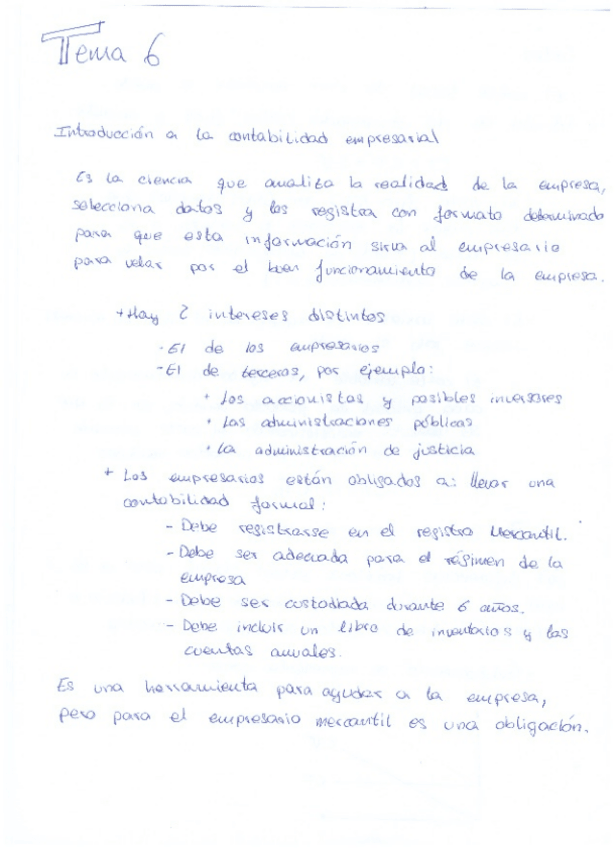 Tema 6
Introducción a la contabilidad empresarial
Es la ciencia que analiza la realidad de la empresa,
selecciona datos y los registra con formato determinado
para que esta información sirva al empresario
para velar por el buen funcionamiento de la empresa.
+ Hay 2 intereses distintos
- El de los empresarios
- El de terceros, por ejemplo:
• Los accionistas y posibles inversores
• Las administraciones públicas
• La administración de justicia
+ Los empresarios están obligados a: llevar una
contabilidad formal:
- Debe registrarse en el registro Mercantil.
- Debe ser adecuada para el régimen de la
empresa
- Debe ser custodiada durante 6 años.
- Debe incluir un libro de inventarios y las
cuentas anuales.
Es una herramienta para ayudar a la empresa,
pero para el empresario mercantil es una obligación.